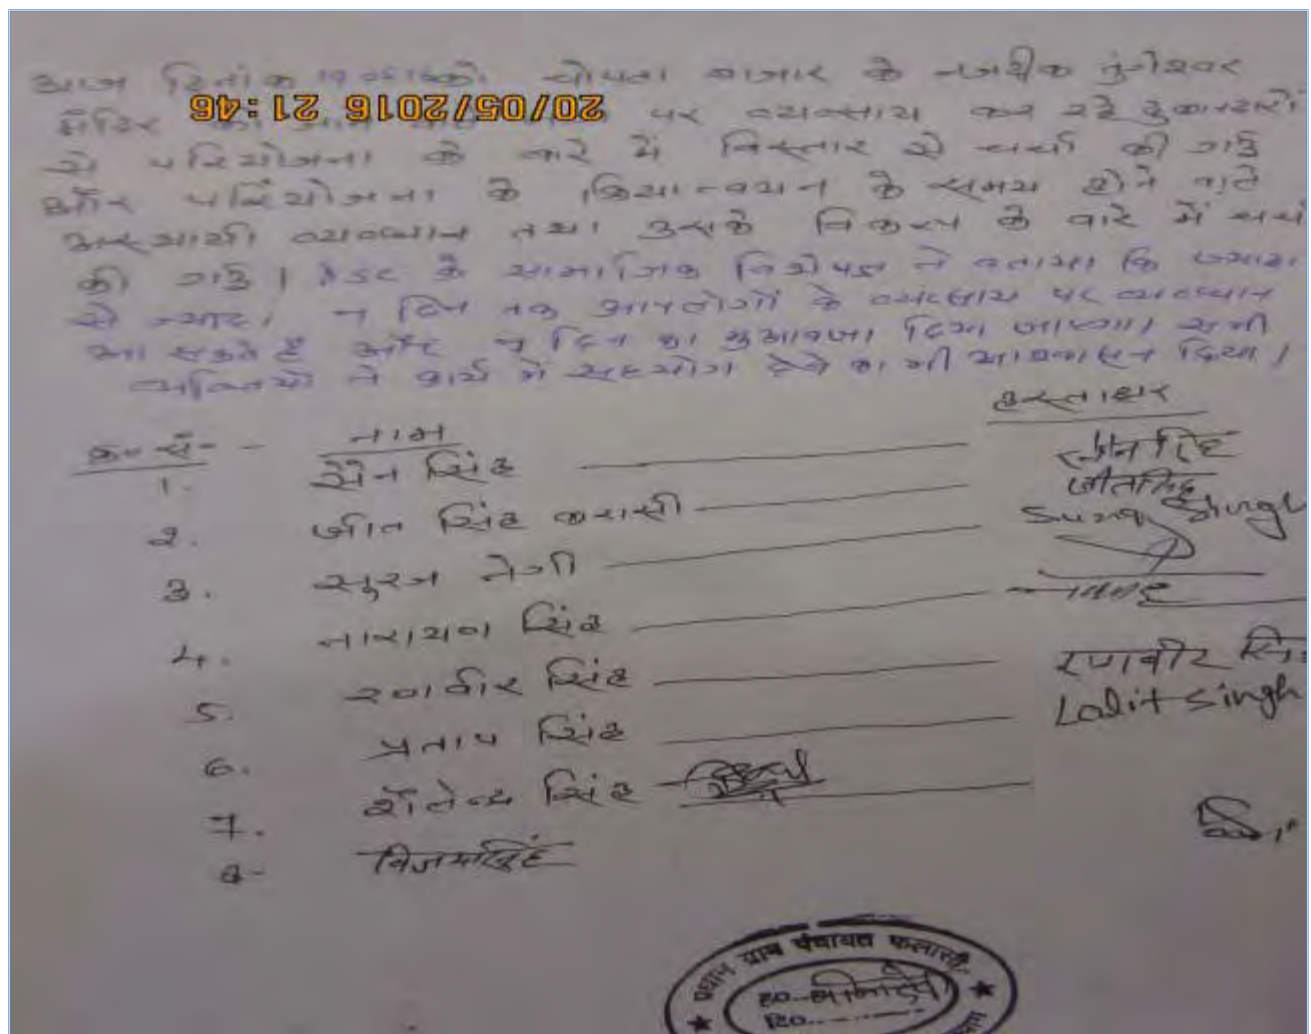 आज दिनांक 19.05.16 को चोपता बाजार के नजदीक तुंगेश्वर
मंदिर को जाने वाले पर व्यवसाय कर रहे दुकानदारों
20/05/2016 21:46
से परियोजना के बारे में विस्तार से चर्चा की गई
और परियोजना के क्रियान्वयन के समय होने वाले
अस्थायी व्यवधान तथा उसके विकल्प के बारे में चर्चा
की गई। DSC के सामाजिक विशेषज्ञ ने बताया कि ज्यादा
से ज्यादा 7 दिन तक आपलोगों के व्यवसाय पर व्यवधान
आ सकते हैं और 7 दिन का मुआवजा दिया जाएगा। सभी
व्यक्तियों ने कार्य में सहयोग देने का भी आश्वासन दिया।
क्र० सं० - नाम हस्ताक्षर
1. सेन सिंह
2. जीत सिंह जीतसिंह
3. सूरज नेगी Suraj Singh
4. नारायण सिंह
5. रणवीर सिंह रणवीर सिंह
6. प्रताप सिंह Lalit Singh
7. शैलेन्द्र सिंह
8- विजयसिंह
प्रधान ग्राम पंचायत फलासी
ह०..बीनादेवी
दि०........